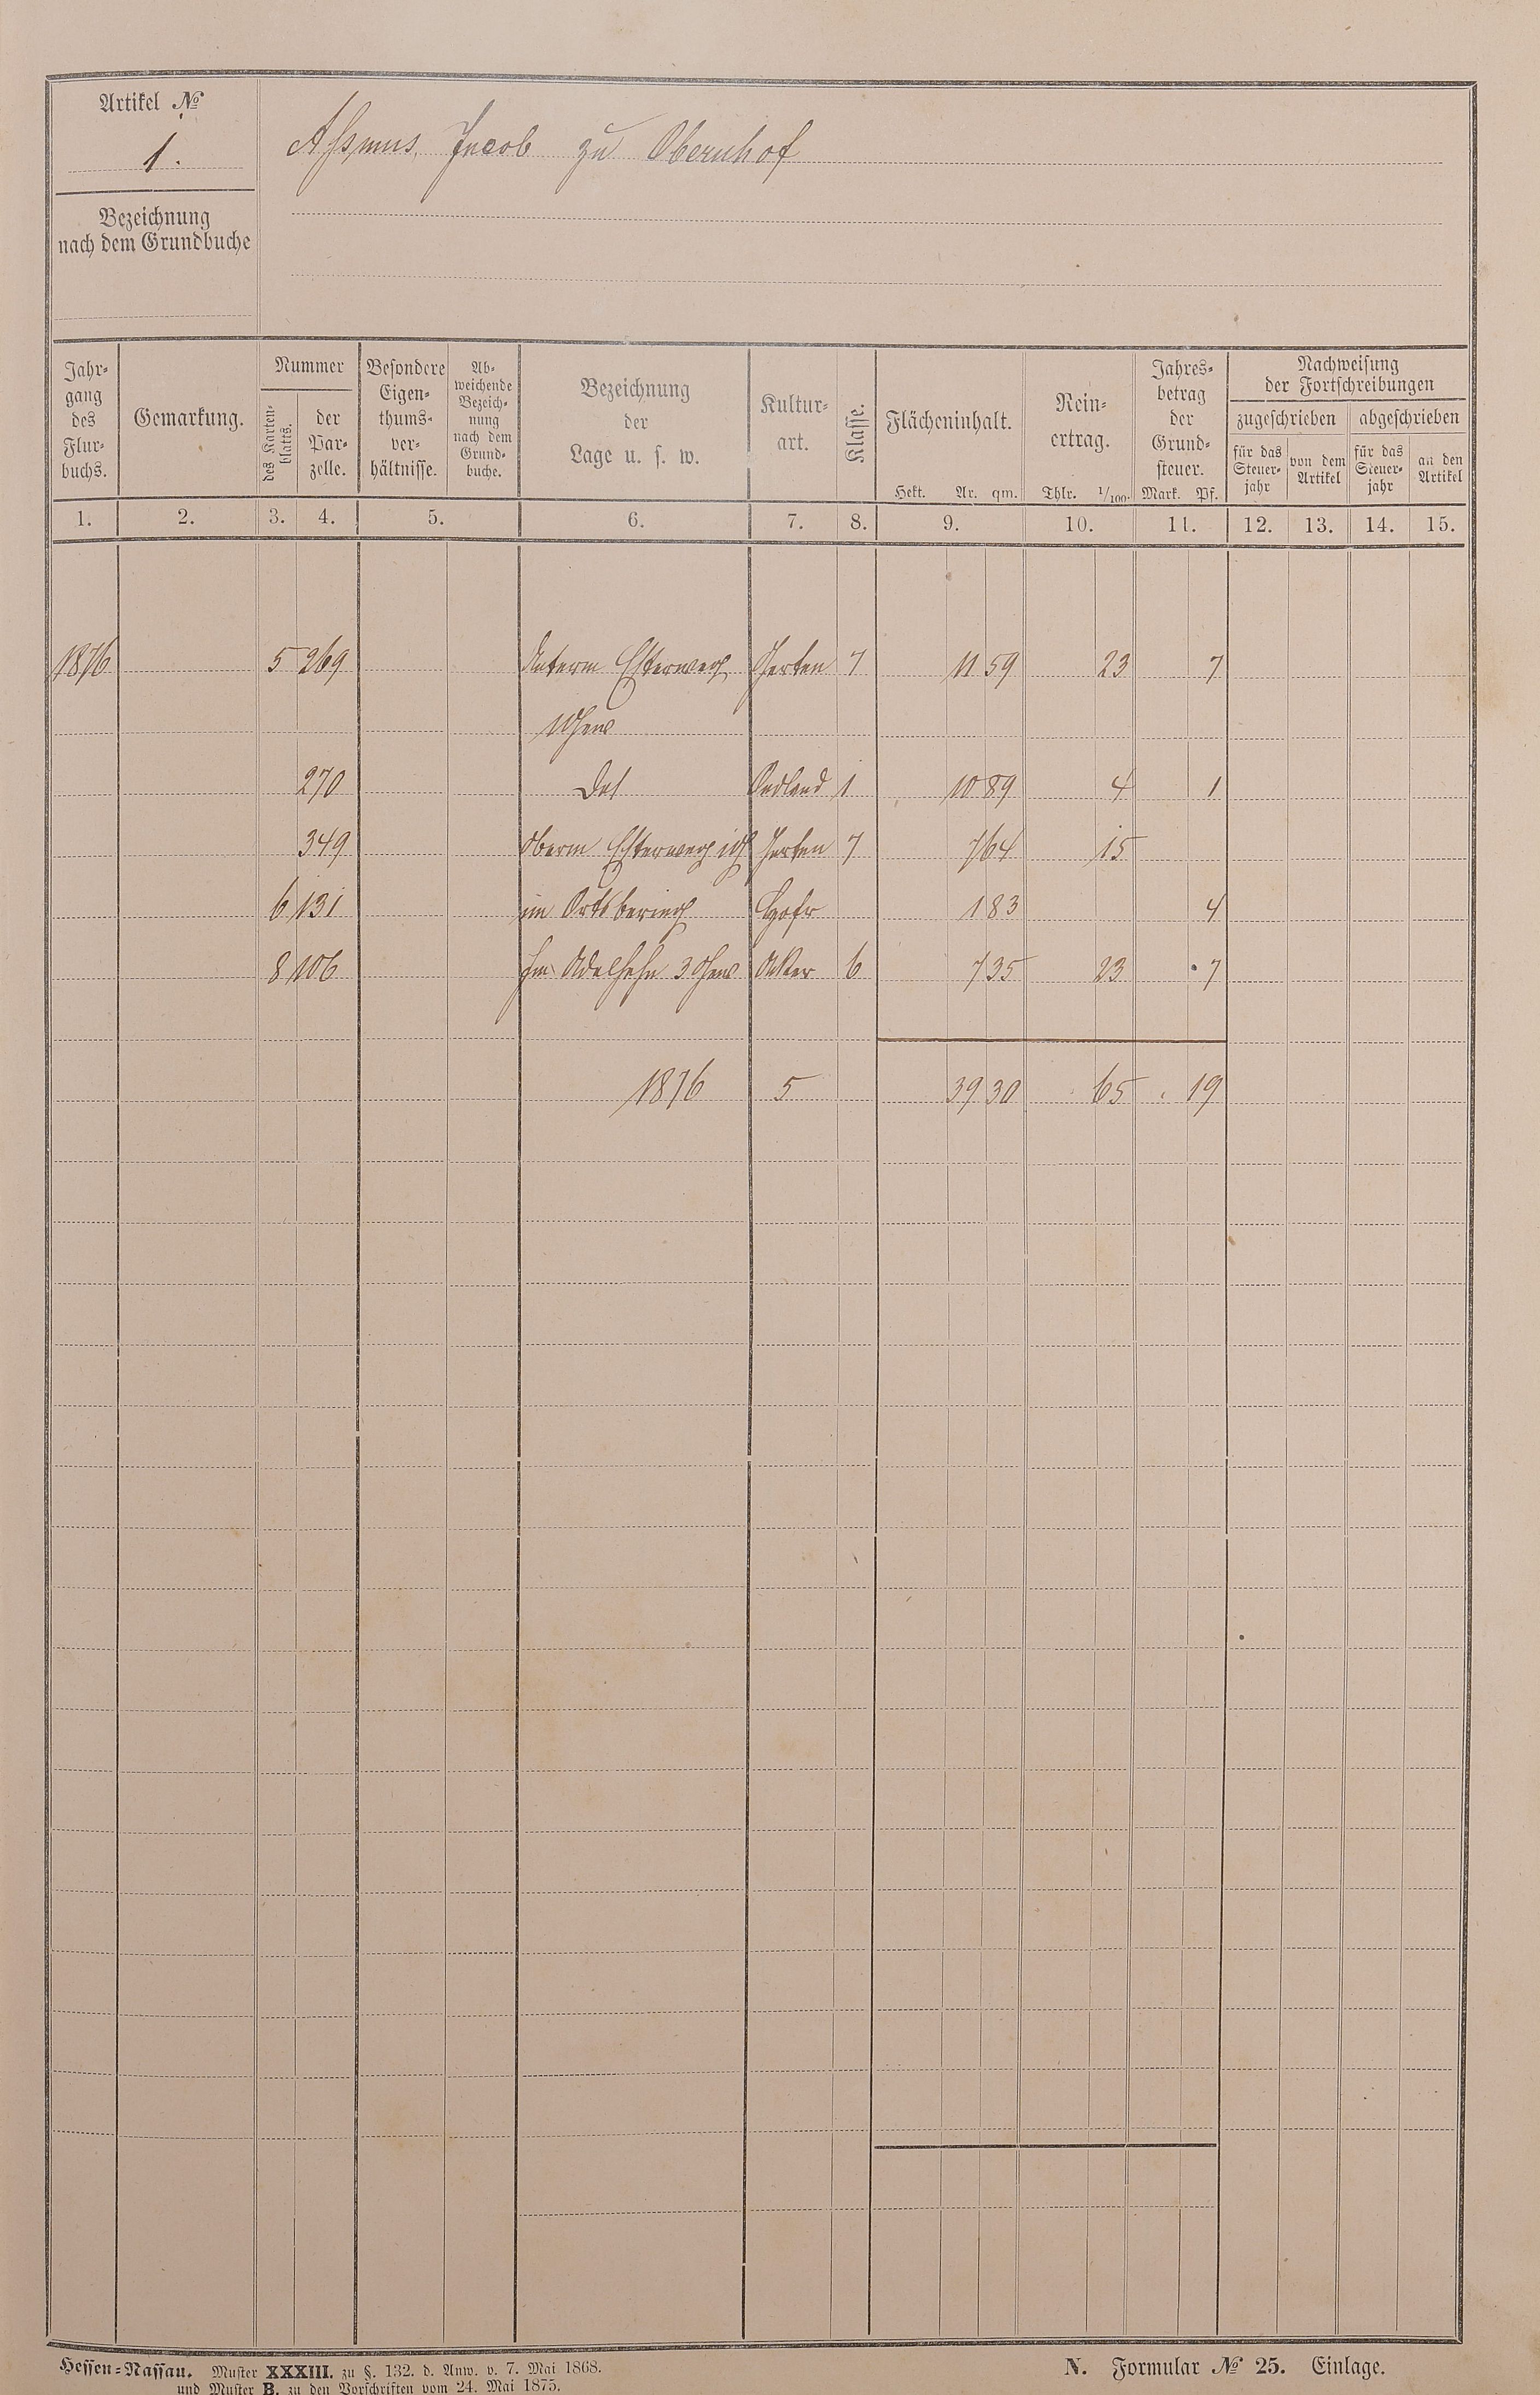 Artikel №
1.
Aßmus, Jacob zu Obernhof
Bezeichnung
nach dem Grundbuche
Jahr-
gang
des
Flur-
buchs.
Gemarkung.
Nummer
des Karten-
blatts.
der
Par-
zelle.
Besondere
Eigen-
thums-
ver-
hältnisse.
Ab-
weichende
Bezeich-
nung
nach dem
Grund-
buche.
Bezeichnung
der
Lage u. s. w.
Kultur-
art.
Klasse.
Flächeninhalt.
Hekt. Ar. qm.
Rein-
ertrag.
Thlr. 1/100.
Jahres-
betrag
der
Grund-
steuer.
Mark. Pf.
Nachweisung
der Fortschreibungen
zugeschrieben abgeschrieben
für das
Steuer-
jahr
von dem
Artikel
für das
Steuer-
jahr
an den
Artikel
1. 2. 3. 4. 5. 6. 7. 8. 9. 10. 11. 12. 13. 14. 15.
1876 5 269 Unterm Garten 7 11 59 23 7
270 Oedland 1 10 89 4 1
349 Oberm Garten 7 7 64 15
6 131 im Ortsbering Hofr 1 83 4
8 106 Im 3 Acker 6 7 35 23 7
1876 5 39 30 65 19
Hessen-Nassau. Muster XXXIII. zu §. 132. d. Anw. v. 7. Mai 1868.
und Muster B. zu den Vorschriften vom 24. Mai 1875.
N. Formular № 25. Einlage.